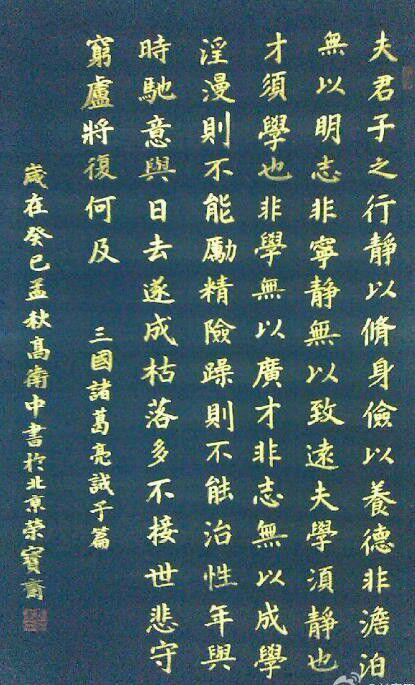 夫君子之行靜以脩身儉以養德非澹泊
無以明志非寧靜無以致遠夫學須靜也
才須學也非學無以廣才非志無以成學
淫漫則不能勵精險躁則不能治性年與
時馳意與日去遂成枯落多不接世悲守
窮廬將復何及 三國諸葛亮誡子篇
歲在癸巳孟秋高衛中書於北京榮寶齋